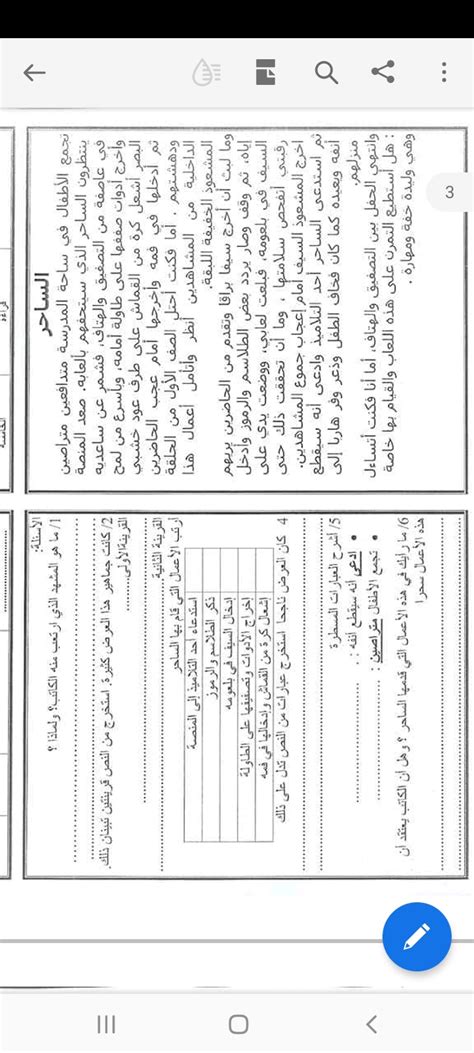 3
الساحر
تجمع الأطفال في ساحة المدرسة متدافعين متراصين
ينتظرون الساحر الذي سيتحفهم بألعابه. صعد المنصة
في عاصفة من التصفيق والهتاف، فشمر عن ساعديه
وأخرج أدوات صففها على طاولة أمامه، وبأسرع من لمح
البصر أشعل كرة من القماش على طرف عود خشبي
ثم أدخلها في فمه وأخرجها أمام عجب الحاضرين
ودهشتهم. أما فكنت أحتل الصف الأول من الحلقة
الداخلية من المشاهدين أنظر وأتأمل أعمال هذا
المشعوذ الخفيفة اللبقة.
وما لبث أن أخرج سيفا براقا وتقدم من الحاضرين يريهم
إياه، ثم وقف وصار يردد بعض الطلاسم والرموز وأدخل
السيف في بلعومه، فبلعت لعابي، ووضعت يدي على
رقبتي أتفحص سلامتها، وما أن تحققت ذلك حتى
أخرج المشعوذ السيف أمام إعجاب جموع المشاهدين.
ثم استدعى الساحر أحد التلاميذ وادعى أنه سيقطع
أنفه ويعيده كما كان فخاف الطفل وذعر وفر هاربا إلى
منزلهم.
وانتهى الحفل بين التصفيق والهتاف، أما أنا فكنت أتساءل
: هل أستطيع التمرن على هذه اللعاب والقيام بها خاصة
وهي وليدة خفة ومهارة.
الأسئلة:
1/ ما هو المشهد الذي ارتعب منه الكاتب؟ ولماذا ؟
2/ كانت جماهير هذا العرض كثيرة. استخرج من النص قرينتين تبينان ذلك.
القرينة الأولى
القرينة الثانية
أرتب الأعمال التي قام بها الساحر
استدعاء أحد التلاميذ إلى المنصة
ذكر الطلاسم والرموز
إدخال السيف في بلعومه
إخراج الأدوات وتصفيفها على الطاولة
إشعال كرة من القماش وإدخالها في فمه
4 كان العرض ناجحا استخرج عبارات من النص تدل على ذلك
5/ أشرح العبارات المسطرة
ادعى أنه سيقطع أنفه :
تجمع الأطفال متراصين :
6/ ما رأيك في هذه الأعمال التي قدمها الساحر ؟ وهل أن الكاتب يعتقد أن
هذه الأعمال سحرا